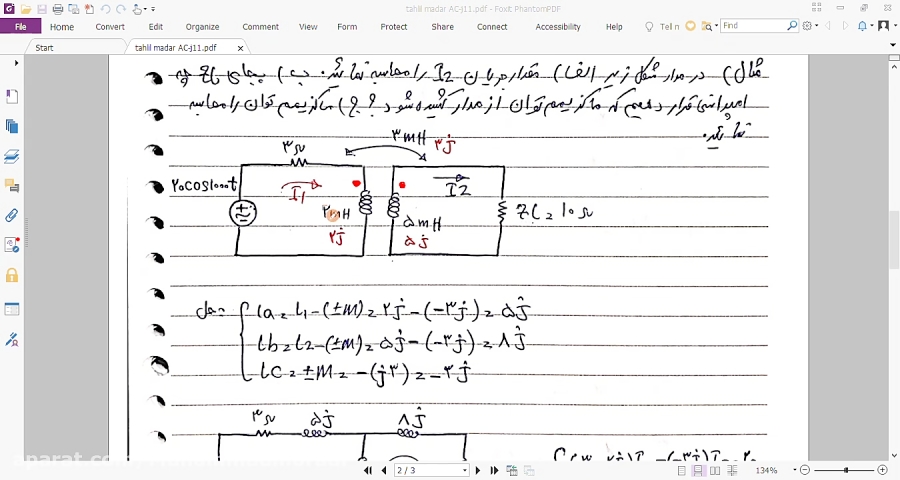 tahlil madar AC-j11.pdf - Foxit PhantomPDF
File Home Comment Edit Organize Convert Share View Form Protect Connect Accessibility Help Tell n Find
Start tahlil madar AC-j11.pdf
مثال) در مدار شکل زیر الف) مقدار جریان I2 را محاسبه نمائید. ب) بجای ZL چه
امپدانسی قرار دهیم که ماکزیمم توان از مدار کشیده شود؟ ج) ماکزیمم توان را محاسبه
نمائید.
۳mH ۳j
۳Ω
۲۰cos۱۰۰۰t
I1
I2
۲mH
۲j
۵mH
۵j
ZL = ۱۰Ω
La = L1 - (±M) = ۲j - (-۳j) = ۵j
Lb = L2 - (±M) = ۵j - (-۳j) = ۸j
Lc = ±M = -(j۳) = -۳j
۳Ω ۵j ۸j
2 / 3
134%